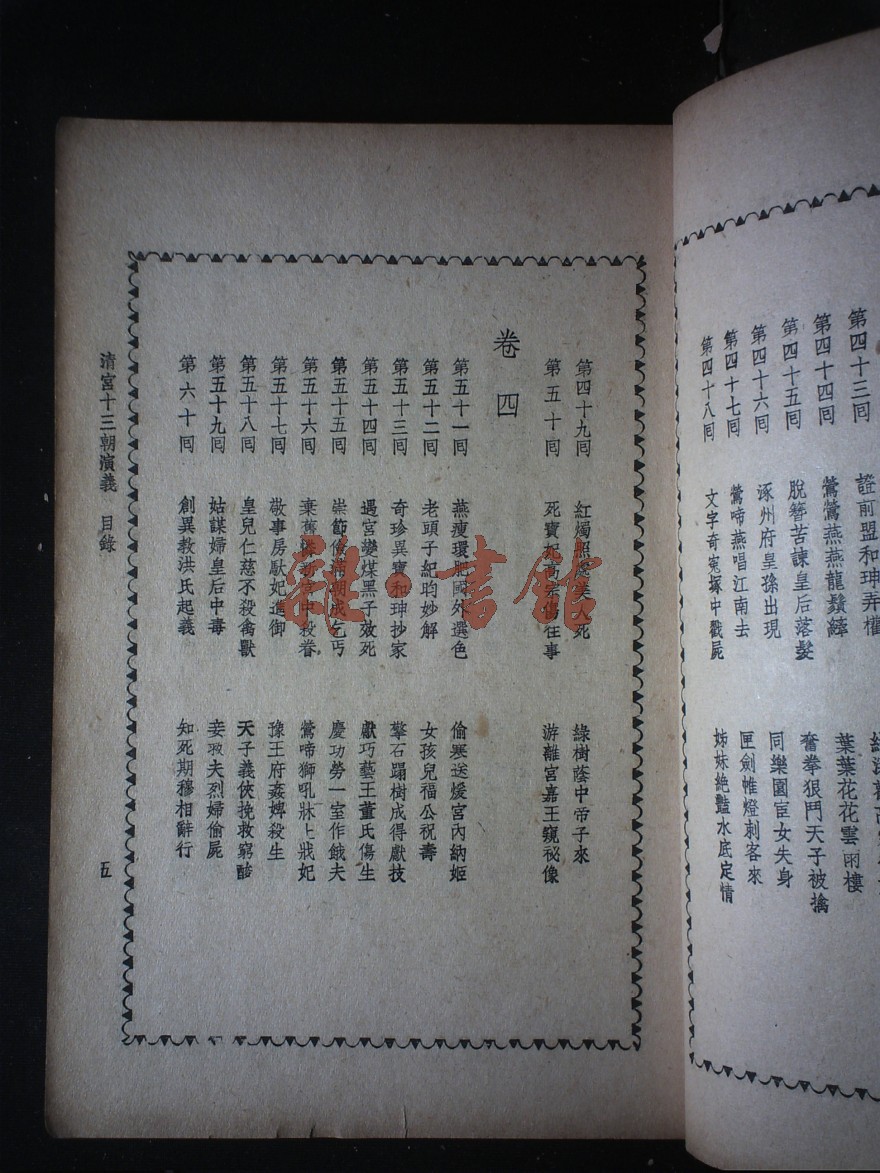 第四十三囘　證前盟和珅弄權
第四十四囘　鶯鶯燕燕龍鬚縴　葉葉花花雲雨樓
第四十五囘　脫簪苦諫皇后落髮　奮拳狠鬥天子被擒
第四十六囘　涿州府皇孫出現　同樂園宦女失身
第四十七囘　鶯啼燕唱江南去　匣劍帷燈刺客來
第四十八囘　文字奇寃塚中戳屍　姊妹絶豔水底定情
第四十九囘　紅燭照處美人死　綠樹蔭中帝子來
第五十囘　死寶死高宗傷往事　游離宮嘉王窺祕像
卷四
第五十一囘　燕瘦環肥國外選色　偷寒送煖宮內納姬
第五十二囘　老頭子紀昀妙解　女孩兒福公祝壽
第五十三囘　奇珍異寶和珅抄家　擎石蹋樹成得獻技
第五十四囘　遇宮變煤黑子效死　獻巧藝王董氏傷生
第五十五囘　崇節儉滿朝成乞丐　慶功勞一室作餓夫
第五十六囘　棄舊憐新宮中殺眷　鶯啼獅吼牀上戕妃
第五十七囘　敬事房馱妃進御　豫王府姦婢殺生
第五十八囘　皇兒仁慈不殺禽獸　天子義俠挽救窮醋
第五十九囘　姑謀婦皇后中毒　妾救夫烈婦偷屍
第六十囘　創異教洪氏起義　知死期穆相辭行
清宮十三朝演義　目錄　五
雜·書館